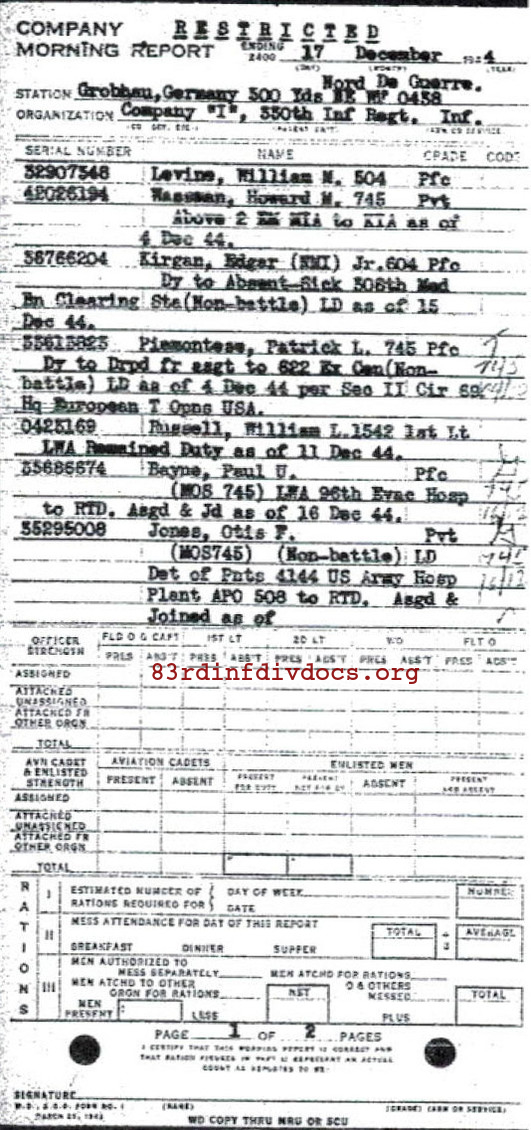 COMPANY RESTRICTED
MORNING REPORT ENDING 2400 17 December 1944
(DAY) (MONTH) (YEAR)
Nord De Guerre.
STATION Grobhau, Germany 500 Yds NE WF 0438
ORGANIZATION Company "I", 330th Inf Regt. Inf.
SERIAL NUMBER NAME GRADE CODE
32907348 Levine, William M. 504 Pfc
42026194 Wassman, Howard M. 745 Pvt
Above 2 EM MIA to KIA as of
4 Dec 44.
36766204 Kirgan, Edgar (NMI) Jr.604 Pfc
Dy to Absent-Sick 308th Med
Bn Clearing Sta(Non-battle) LD as of 15
Dec 44.
33613823 Piemontese, Patrick L. 745 Pfc
Dy to Drpd fr asgt to 822 Ex Gen(Non-
battle) LD as of 4 Dec 44 per Sec II Cir 69
Hq European T Opns USA.
0425169 Russell, William L.1542 1st Lt
LWA Remained Duty as of 11 Dec 44.
35686674 Bayne, Paul U. Pfc
(MOS 745) LWA 96th Evac Hosp
to RTD. Asgd & Jd as of 16 Dec 44.
35295008 Jones, Otis F. Pvt
(MOS745) (Non-battle) LD 745
Det of Pnts 4144 US Army Hosp
Plant APO 508 to RTD. Asgd &
Joined as of
OFFICER STRENGTH FLD O & CAPT 1ST LT 2D LT WO FLT O
PRES ABS'T PRES ABS'T PRES ABS'T PRES ABS'T PRES ABS'T
ASSIGNED
83rdinfdivdocs.org
ATTACHED UNASSIGNED
ATTACHED FR OTHER ORGN
TOTAL
AVN CADET & ENLISTED STRENGTH AVIATION CADETS ENLISTED MEN
PRESENT ABSENT PRESENT FOR DUTY PRESENT NOT FOR DY ABSENT PRESENT AND ABSENT
ASSIGNED
ATTACHED UNASSIGNED
ATTACHED FR OTHER ORGN
TOTAL
RATIONS
I ESTIMATED NUMBER OF RATIONS REQUIRED FOR DAY OF WEEK DATE NUMBER
II MESS ATTENDANCE FOR DAY OF THIS REPORT TOTAL ÷ 3 AVERAGE
BREAKFAST DINNER SUPPER
III MEN AUTHORIZED TO MESS SEPARATELY MEN ATCHD FOR RATIONS
MEN ATCHD TO OTHER ORGN FOR RATIONS NET O & OTHERS MESSED TOTAL
MEN PRESENT LESS PLUS
PAGE 1 OF 2 PAGES
I CERTIFY THAT THIS MORNING REPORT IS CORRECT AND
THAT RATION FIGURES IN PART II REPRESENT AN ACTUAL
COUNT AS REPORTED TO ME
SIGNATURE
W.D., A.G.O. FORM NO. 1 (NAME) (GRADE) (ARM OR SERVICE)
MARCH 25, 1943
WD COPY THRU MRU OR SCU